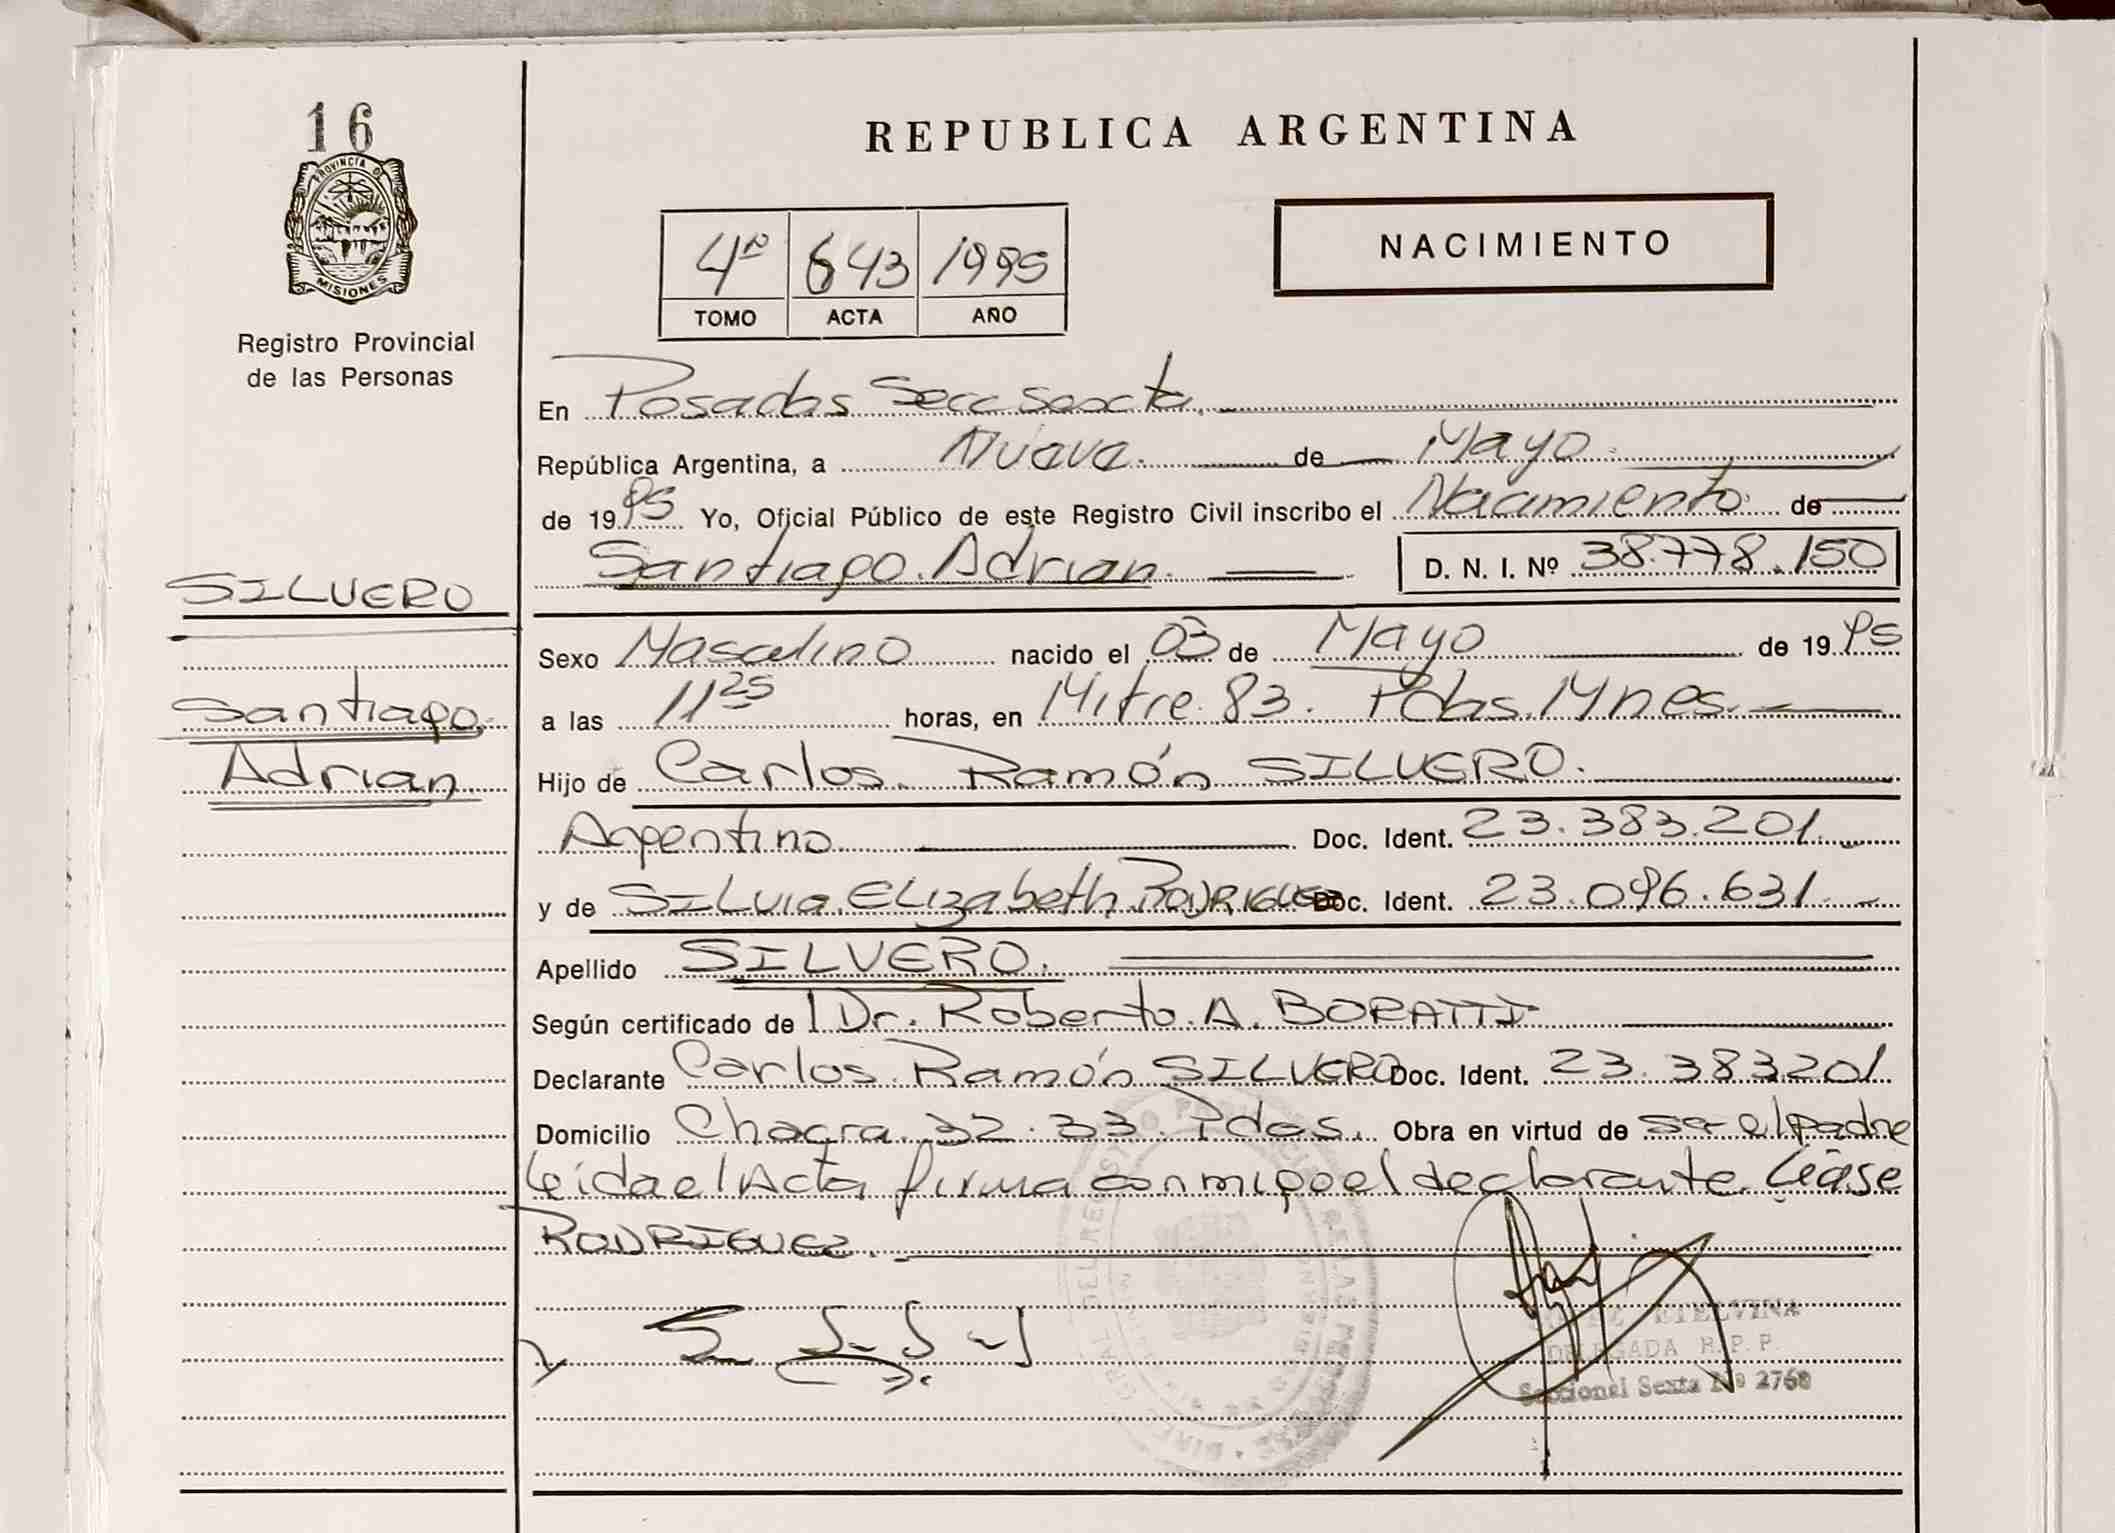 16
PROVINCIA DE
MISIONES
Registro Provincial
de las Personas
SILVERO
Santiago
Adrian
REPUBLICA ARGENTINA
4º 643 1995
TOMO ACTA AÑO
NACIMIENTO
En Posadas Secc Sexta.
República Argentina, a Nueve de Mayo
de 1995 Yo, Oficial Público de este Registro Civil inscribo el Nacimiento de
Santiago Adrian D. N. I. Nº 38.778.150
Sexo Masculino nacido el 03 de Mayo de 1995
a las 11 25 horas, en Mitre 83. Pdas. Mnes.
Hijo de Carlos Ramón SILVERO.
Argentino Doc. Ident. 23.383.201.
y de SILvia ELizabeth RODRIGUEZ Doc. Ident. 23.096.631.
Apellido SILVERO.
Según certificado de Dr. Roberto A. BORATTI
Declarante Carlos Ramón SILVERO Doc. Ident. 23.383201
Domicilio Chacra 32.33. Pdas. Obra en virtud de ser el padre
leída el Acta firma conmigo el declarante. Léase
RODRIGUEZ.
ETELVINA
DELEGADA R. P. P.
Seccional Sexta Nº 2768